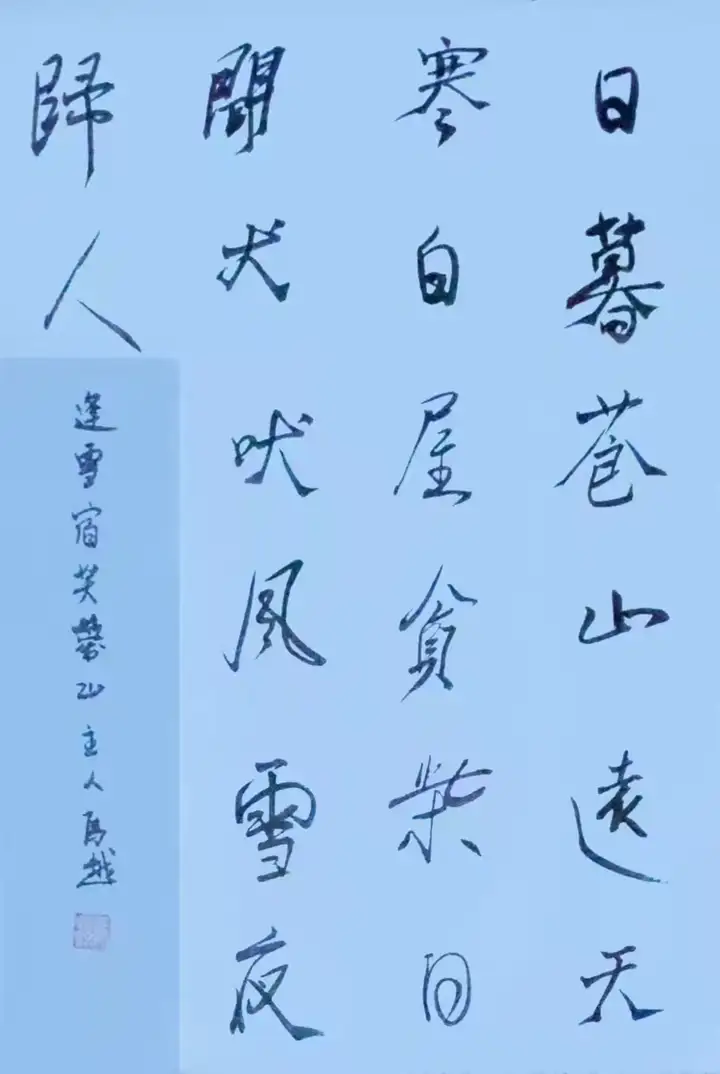 日暮苍山遠天
寒白屋貧柴门
聞犬吠風雪夜
歸人
逢雪宿芙蓉山主人馬越